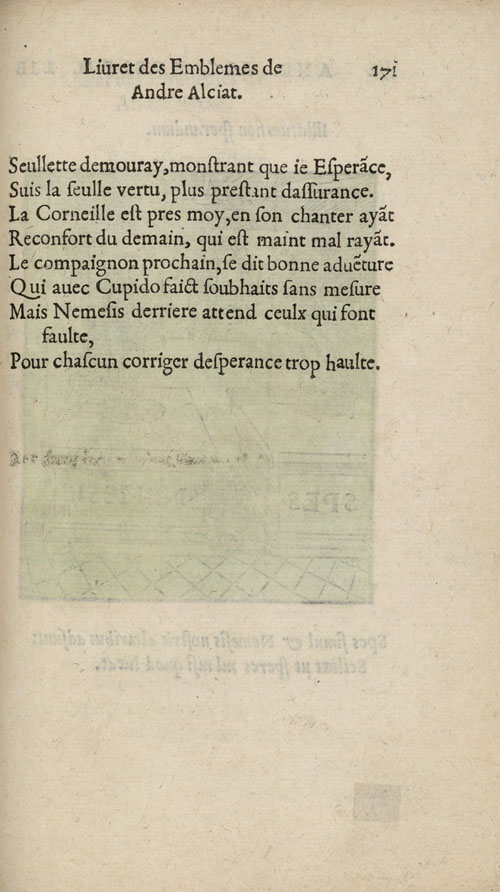 Liuret des Emblemes de 171
Andre Alciat.
Seullette demouray,monſtrant que ie Eſperãce,
Suis la ſeulle vertu, plus preſtant daſſurance.
La Corneille eſt pres moy,en ſon chanter ayãt
Reconfort du demain, qui eſt maint mal rayãt.
Le compaignon prochain,ſe dit bonne aduẽture
Qui auec Cupido faict ſoubhaits ſans meſure
Mais Nemeſis derriere attend ceulx qui font
faulte,
Pour chaſcun corriger deſperance trop haulte.
SPES
Spes ſimul & Nemeſis noſtris altaribus adſunt,
Scilicet ut ſperes nil niſi quod liceat.